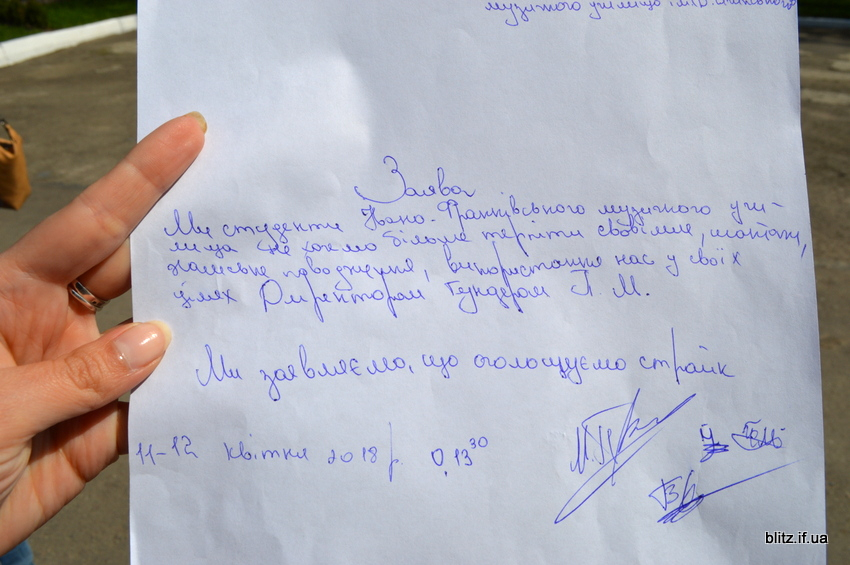 музичного училища ім. Д. Січинського
Заява
Ми студенти Івано-Франківського музичного учи-
лища не хочемо більше терпіти свавілля, шантажу,
хамське поводження, використання нас у своїх
цілях Директором Гундером Л. М.
Ми заявляємо, що оголошуємо страйк
11-12 квітня 2018 р. О, 13 30
blitz.if.ua